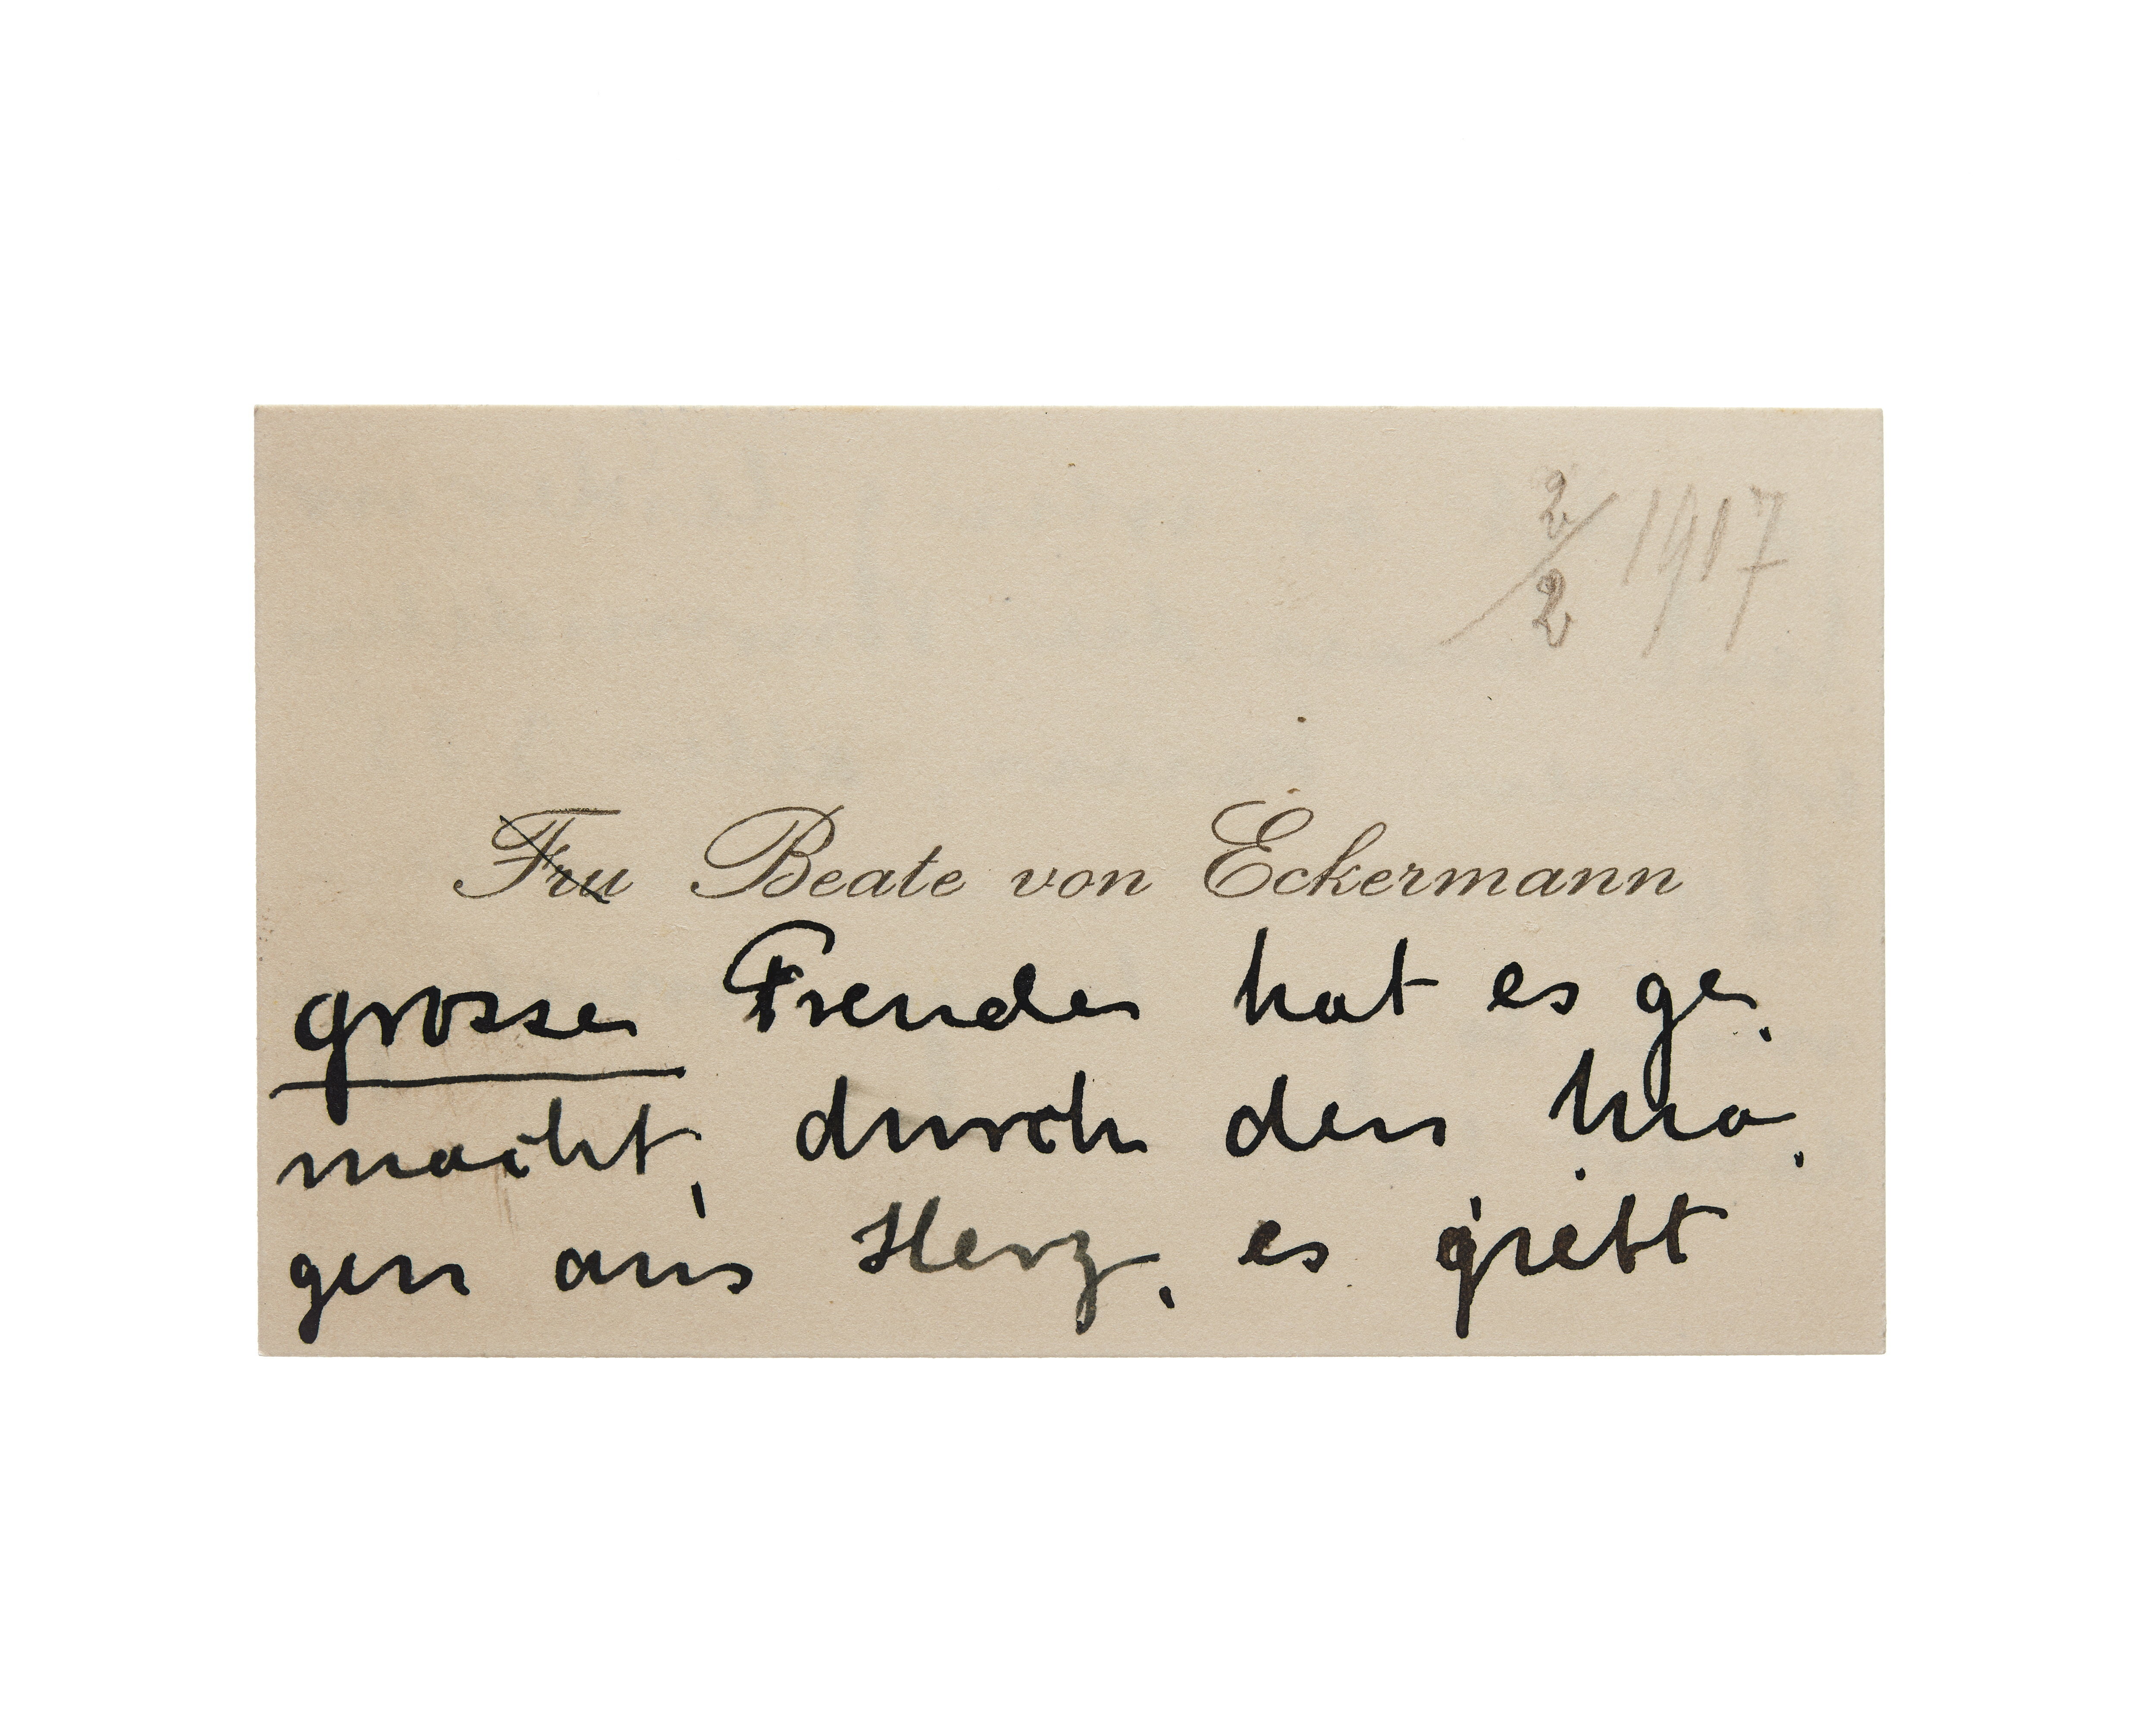 2/2 1917
Fru Beate von Eckermann
grosse Freude hat es ge.
macht, durch den Ma.
gen ans Herz, es giebt